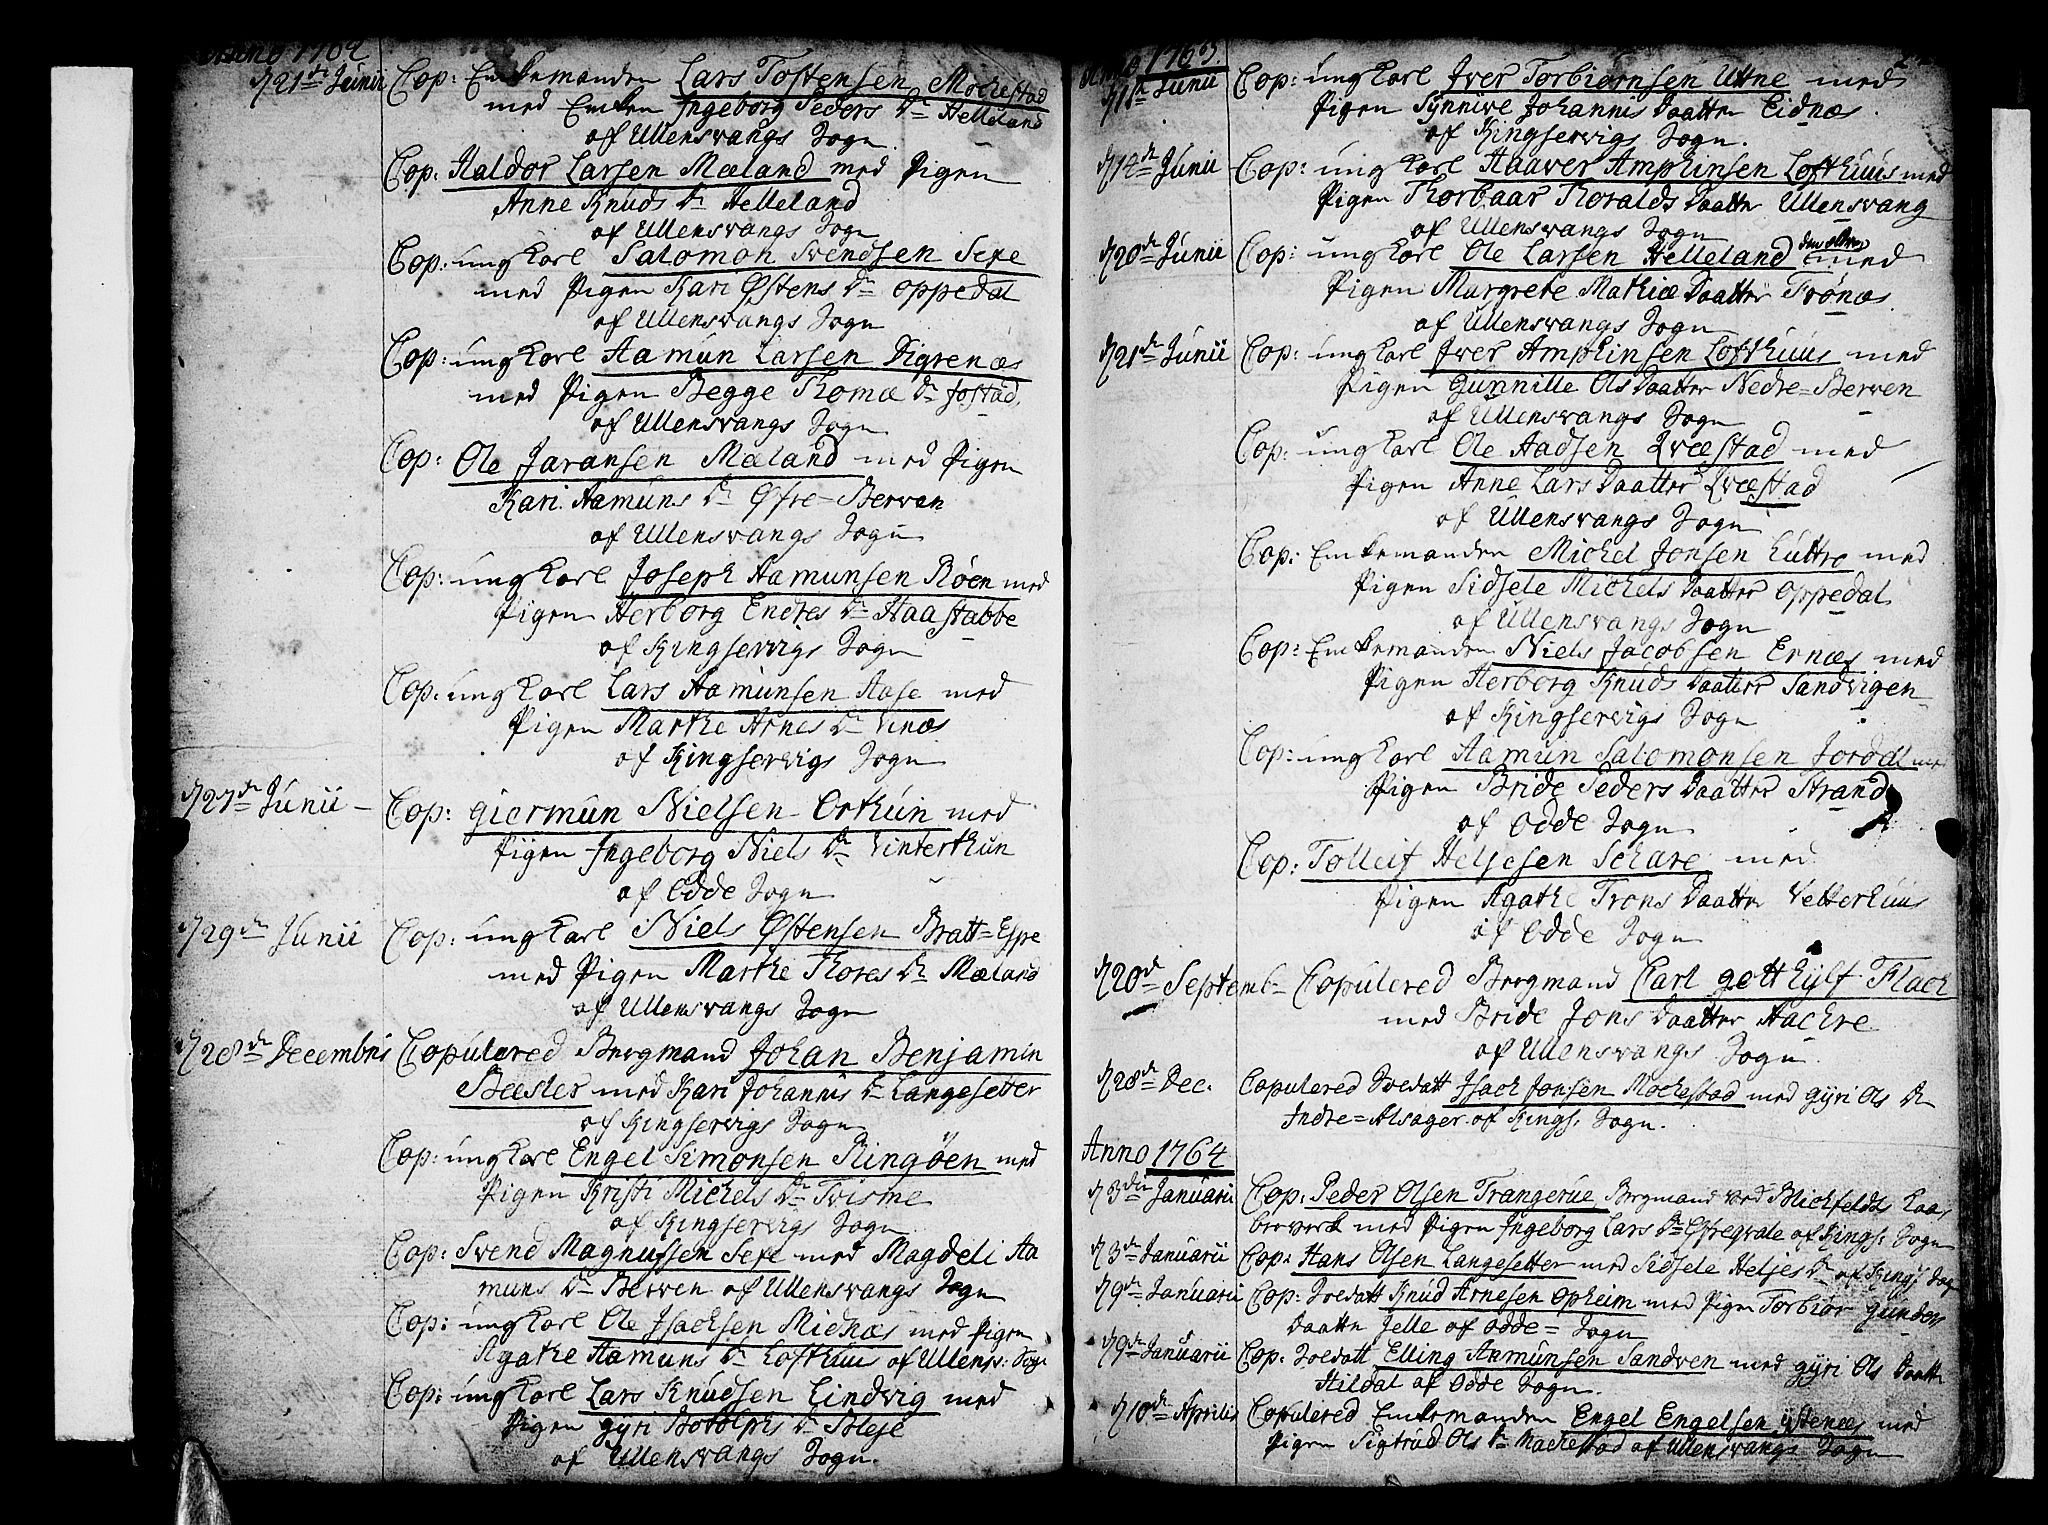 Anno 1762
d 21de Junii Cop: Enkemanden Lars Tostensen Mochestad
med Enken Ingeborg Peders Dr Helleland
af Ullensvangs Sogn
Cop: Haldor Larsen Mæland med Pigen
Anne Knuds Dr Helleland
af Ullensvangs Sogn
Cop: ung Karl Salomon Svendsen Sexe
med Pigen Kari Østens Dr Oppedal
af Ullensvangs Sogn
Cop: ung Karl Aamun Larsen Digrenæs
med Pigen Begge Thomæ Dr Jostad
af Ullensvangs Sogn
Cop: Ole Jaransen Mæland med Pigen
Kari Aamuns Dr Øfre-Bervan
af Ullensvangs Sogn
Cop: ung Karl Joseph Aamunsen Røen med
Pigen Herborg Endres Dr Haastabbe
af Kingservigs Sogn
Cop: ung Karl Lars Aamunsen Aase med
Pigen Marthe Arnes Dr Vinæs
af Kingservigs Sogn
d 27de Junii - Cop: Giermun Nielsen Erthun med
Pigen Ingeborg Niels Dr Vinterthun
af Odde Sogn
d 29de Junii Cop: ung Karl Niels Østensen Bratt=Espe
med Pigen Marthe Thores Dr Mæland
af Ullensvangs Sogn
d 28de Decembris Copulered Bergmand Johan Benjamin
Bæsler med Kari Johannis Dr Langesetter
af Kingservigs Sogn
Cop: ung Karl Engel Simonsen Ringøen med
Pigen Kristi Michels Dr Trisme
af Kingservigs Sogn
Cop: Svend Magnussen Sexe med Magdeli Aa
muns Dr Berven af Ullensvangs Sogn
Cop: ung Karl Ole Isachsen Midnæs med Pigen
Agathe Aamuns Dr Lofthuus af Ullens: Sogn
Cop: ung Karl Lars Knudsen Lindvig med
Pigen Gyri Botolphs Dr Bleje
af Ullensvangs Sogn.
Anno 1763
d 11te Junii Cop: ung Karl Iver Torbiørnsen Uttne med
Pigen Synnive Johannis Daatter Eidnæs
af Kingservigs Sogn.
d 14de Junii Cop: ung Karl Haaver Amphinsen Lofthuus med
Pigen Thorbaar Thoralds Daatter Ullensvang
af Ullensvangs Sogn
d 20de Junii Cop: ung Karl Ole Larsen Helleland den eldre med
Pigen Margrete Mathiæ Daatter Trønæs
af Ullensvangs Sogn
d 21de Junii Cop: ung Karl Iver Amphinsen Lofthuus med
Pigen Gunnille Ols Daatter Nedre=Berven
af Ullensvangs Sogn
Cop: ung Karl Ole Aadsen Qvæstad med
Pigen Anne Lars Daatter Qvæstad
af Ullensvangs Sogn
Cop: Enkemanden Michel Jonsen Luttro med
Pigen Sidsele Michels Daatter Oppedal
af Ullensvangs Sogn
Cop: Enkemanden Niels Jacobsen Ernæs med
Pigen Herborg Knuds Daatter Sandvigen
af Kingservigs Sogn
Cop: ung Karl Aamun Salomonsen Jordal med
Pigen Bride Peders Daatter Strand
af Odde Sogn
Cop: Tolleif Heljesen Schare med
Pigen Agathe Trons Daatter Vetterhuus
af Odde Sogn
d 20de Septemb- Copulered Bergmand Carl Gotthylf Flach
med Bride Jons Daatter Aachre
af Ullensvangs Sogn
d 28de Dec. Copulered Soldatt Isach Jonsen Mochestad med Gyri Ols Dr
Indre=Alsager af Kings: Sogn.
Anno 1764
d 3die Januarii Cop: Peder Olsen Trangerue Bergmand ved Blichfelds Kaa,
berverk med Pigen Ingeborg Lars Dr Espeqvale af Kings: Sogn
d 3de Januarii Cop: Hans Olsen Langesetter med Sidsele Heljes Dr af Kings: Sogn
d 9de Januarii Cop: Soldatt Knud Arnesen Opheim med Pigen Torbiør Gunders
Daatter Jelle af Odde= Sogn
d 9de Januarii Cop: Soldatt Elling Aamunsen Sandven med Gyri Ols Daatter
Hildal af Odde Sogn.
d 10de Aprilis Copulered Enkemanden Engel Engelsen Ystenæs med
Pigen Sigtrud Ols Dr Mochestad af Ullensvangs Sogn